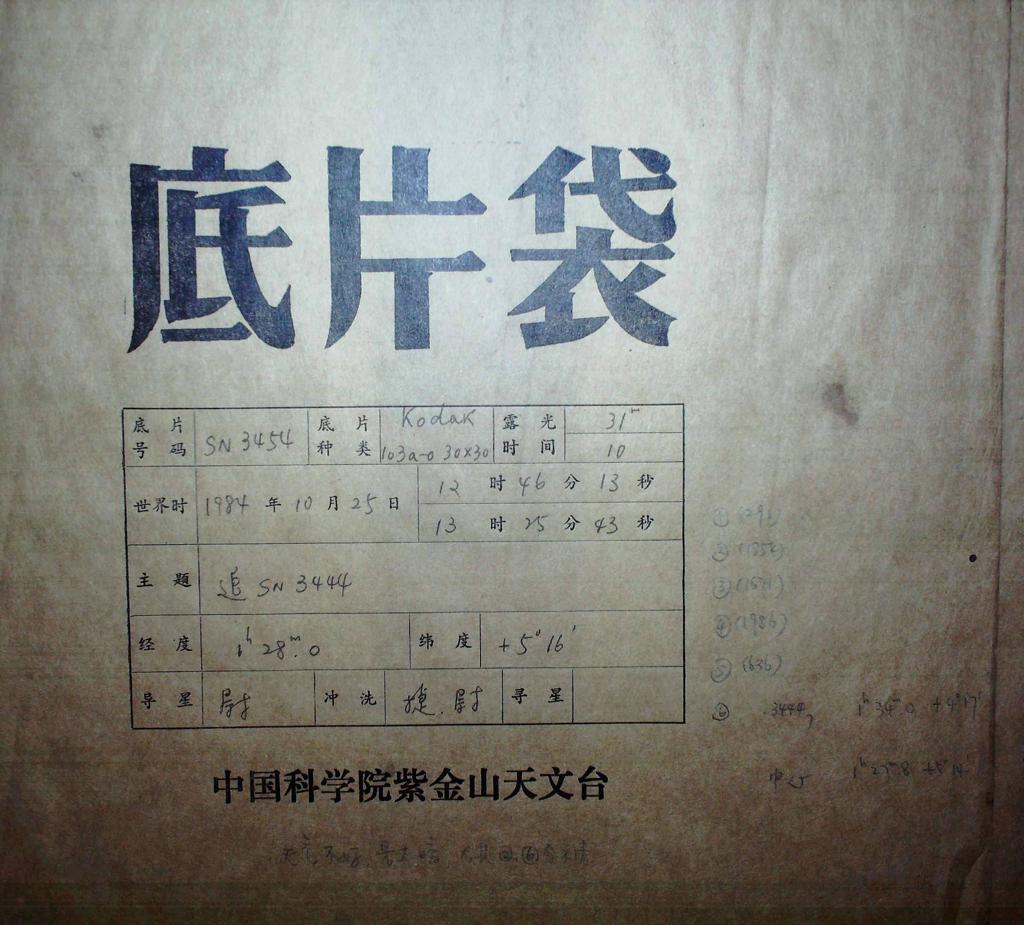 底片袋
底片号码 SN 3454 底片种类 Kodak 103a-0 30×30 露光时间 31ᵐ 10
世界时 1984 年 10 月 25 日 12 时 46 分 13 秒
13 时 25 分 43 秒
主题 追 SN 3444
经度 1ʰ 28ᵐ.0 纬度 +5° 16′
导星 尉 冲洗 捷.尉 寻星
中国科学院紫金山天文台
③
④ (1986)
⑤ (636)
⑥ 3444, 1ʰ 34ᵐ.0 +4° 17′
中心 1ʰ 27ᵐ.8 +5° 14′
天气不好